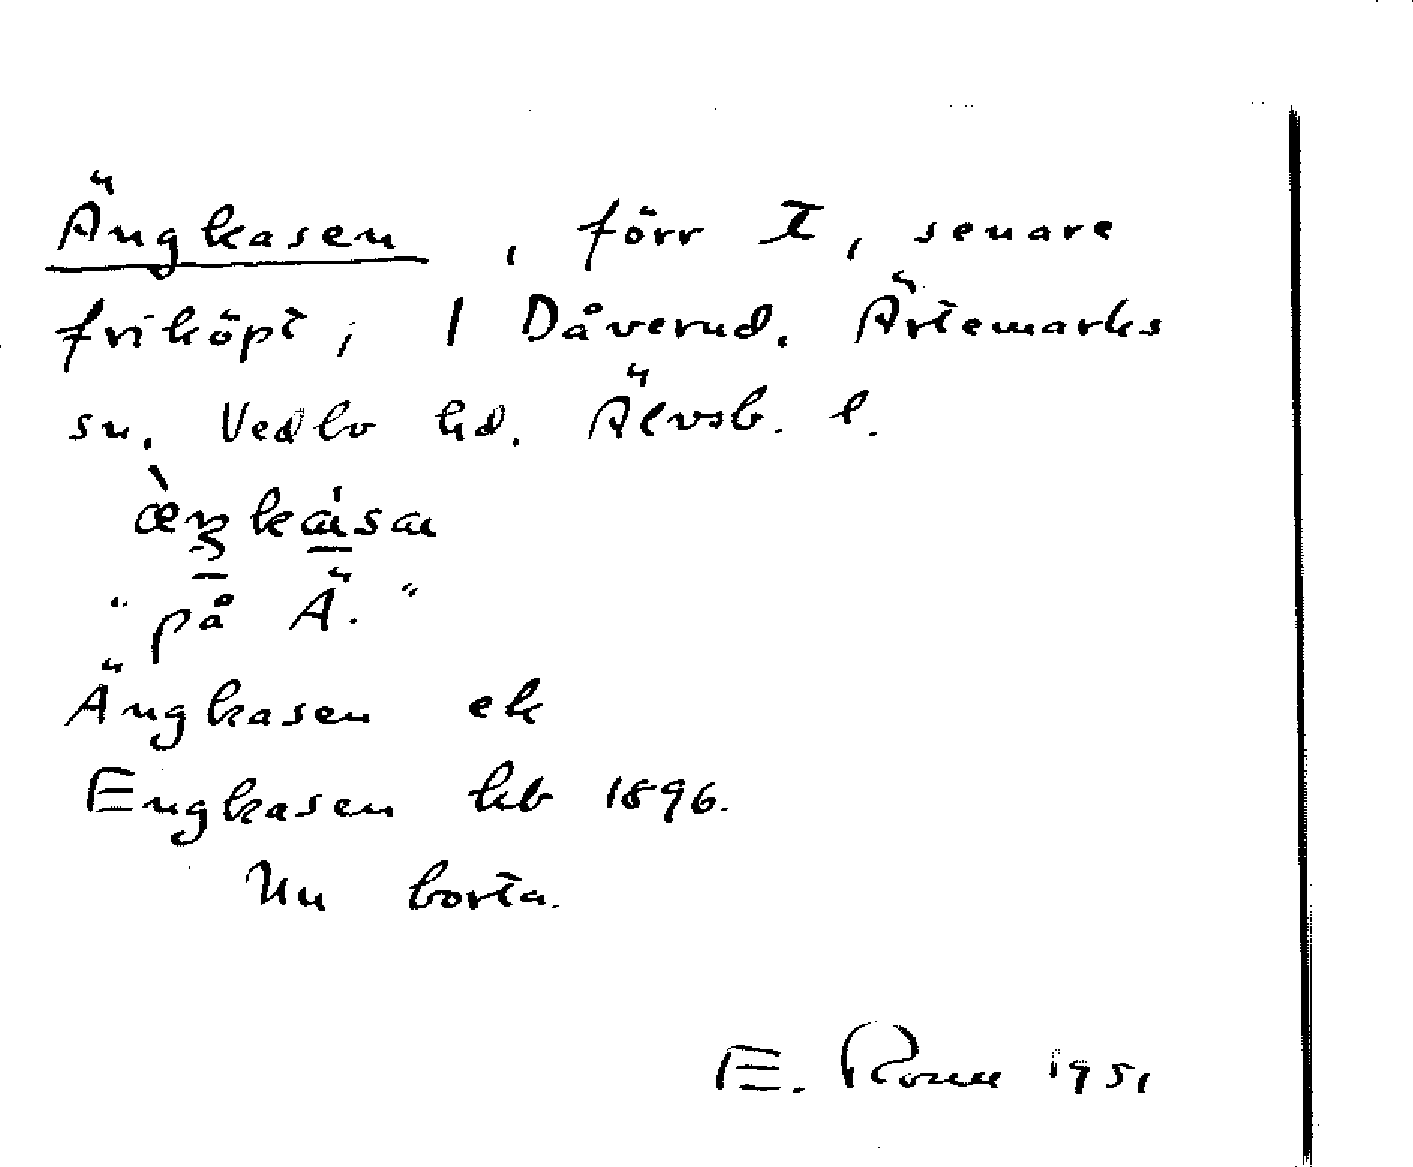 Ängkasen, förr T, senare
friköpt, / Dåverud. Ärtemarks
sn. Vedbo hd. Älvsb. l.
"på Ä."
Ängkasen ek
Engkasen kb 1896.
Nu borta.
E. 1951